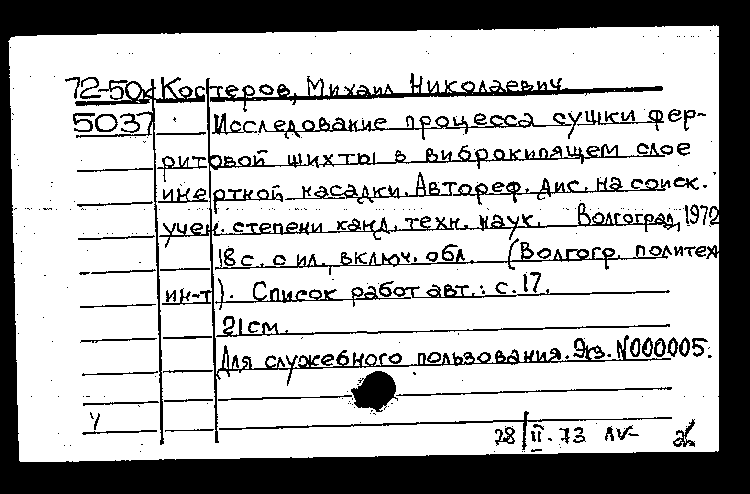 72-50к Костеров, Михаил Николаевич.
5037 Исследование процесса сушки фер-
ритовой шихты в виброкипящем слое
инертной насадки. Автореф. дис. на соиск.
учен. степени канд. техн. наук. Волгоград, 1972
18 с. с ил., включ. обл. (Волгогр. политех
ин-т). Список работ авт.: с. 17.
21 см.
Для служебного пользования. Экз. N000005.
28/II-73